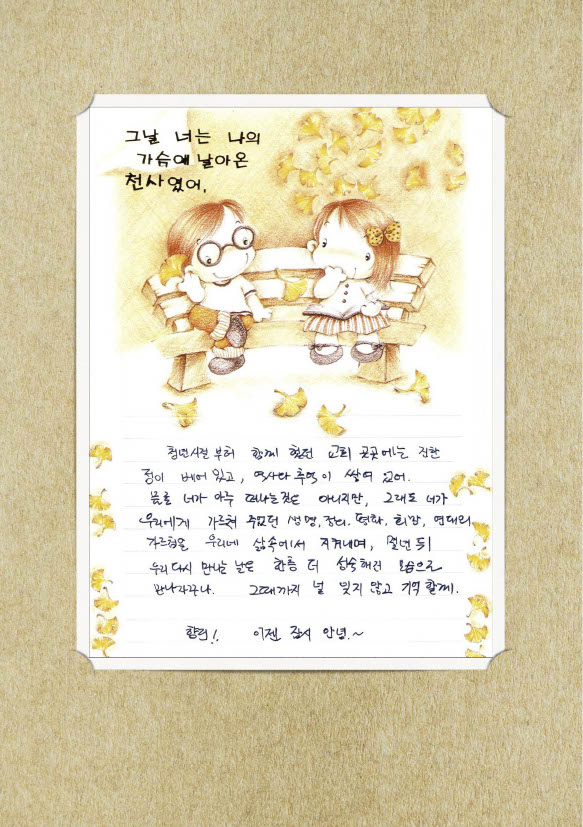 그날 너는 나의
가슴에 날아온
천사였어.
청년시절부터 함께 했던 교회 곳곳에는 진한
정이 베어 있고, 역사와 추억이 쌓여 있어.
물론 네가 아주 떠나는것은 아니지만, 그래도 네가
우리에게 가르쳐 주었던 생명, 정의, 평화, 희망, 연대의
가르침을 우리네 삶속에서 지켜내며, 몇년 뒤
우리 다시 만나는 날은 한층 더 성숙해진 모습으로
만나자꾸나. 그때까지 널 잊지 않고 기억할께.
이젠 잠시 안녕.~